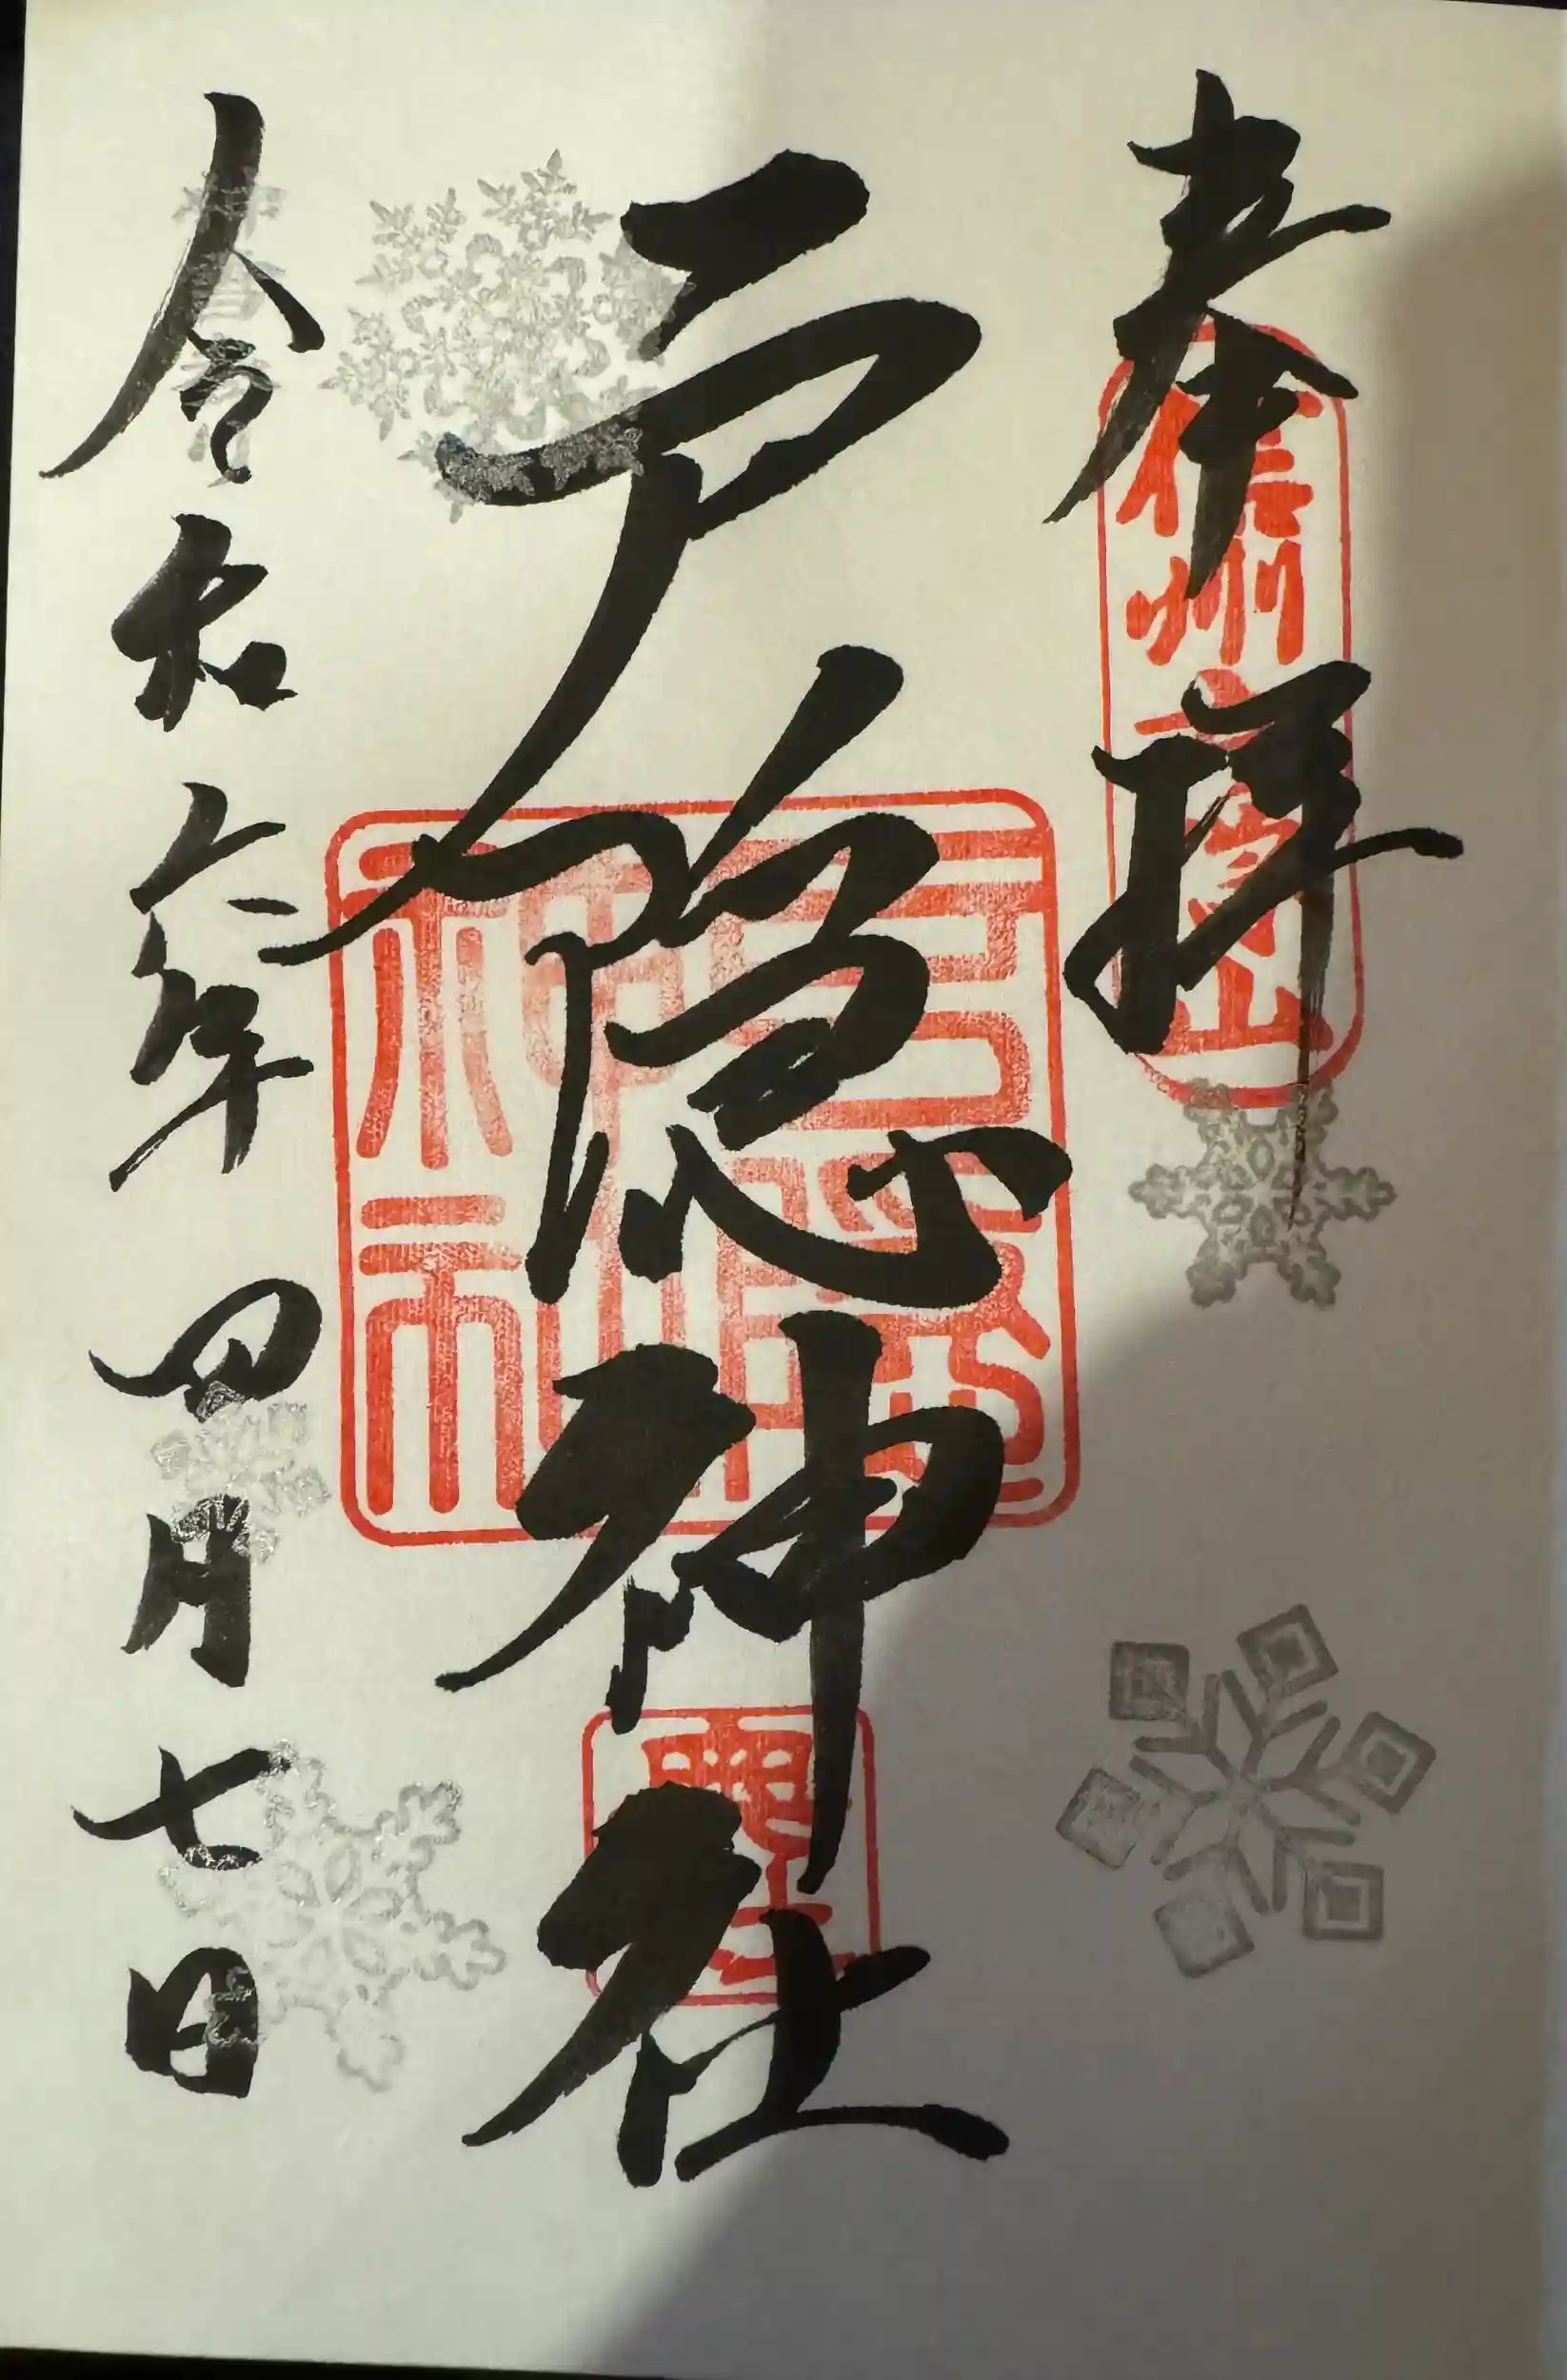 奉拝
信州戸隠山
戸隠神社
戸隠神社中社
令和六年四月七日